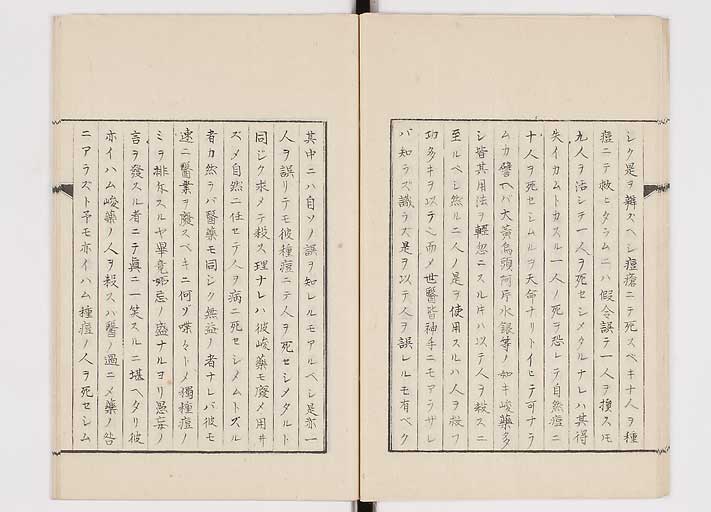 シク是ヲ辨ズヘシ痘瘡ニテ死スベキ十人ヲ種
痘ニテ救ヒタラムニハ假令誤テ一人ヲ損スルモ
九人ヲ活シテ一人ヲ死セシメタルナレハ其得
失イカムトカスル一人ノ死ヲ恐レテ自然痘ニ
十人ヲ死セシムルヲ天命ナリトイヒテ可ナラ
ムカ譬ヘバ大黃烏頭阿片水銀等ノ如キ峻藥多
シ皆其用法ヲ輕忽ニスル片ハ以テ人ヲ殺スニ
至ルベシ然ルニ人ノ是ヲ使用スルハ人ヲ救フ
功多キヲ以テ之而メ世醫皆神手ニモアラザレ
バ知ラズ識ラズ是ヲ以テ人ヲ誤レルモ有ベク
其中ニハ自ソノ誤ヲ知レルモアルベシ是亦一
人ヲ誤リテモ彼種痘ニテ人ヲ死セシメタルト
同シク求メテ殺ス理ナレハ彼峻藥モ廢メ用井
ズメ自然ニ任セテ人ヲ病ニ死セシメムトズル
者カ然ラバ醫藥モ同シク無益ノ者ナレバ彼モ
速ニ醫業ヲ廢スベキニ何ゾ喋々トメ獨種痘ノ
ミヲ排斥スルヤ畢竟妬忌ノ盛ナルヨリ愚妄ノ
言ヲ發スル者ニテ眞ニ一笑スルニ堪ヘタリ彼
亦イハム峻藥ノ人ヲ殺スハ醫ノ過ニメ藥ノ咎
ニアラズト予モ亦イハム種痘ノ人ヲ死セシム